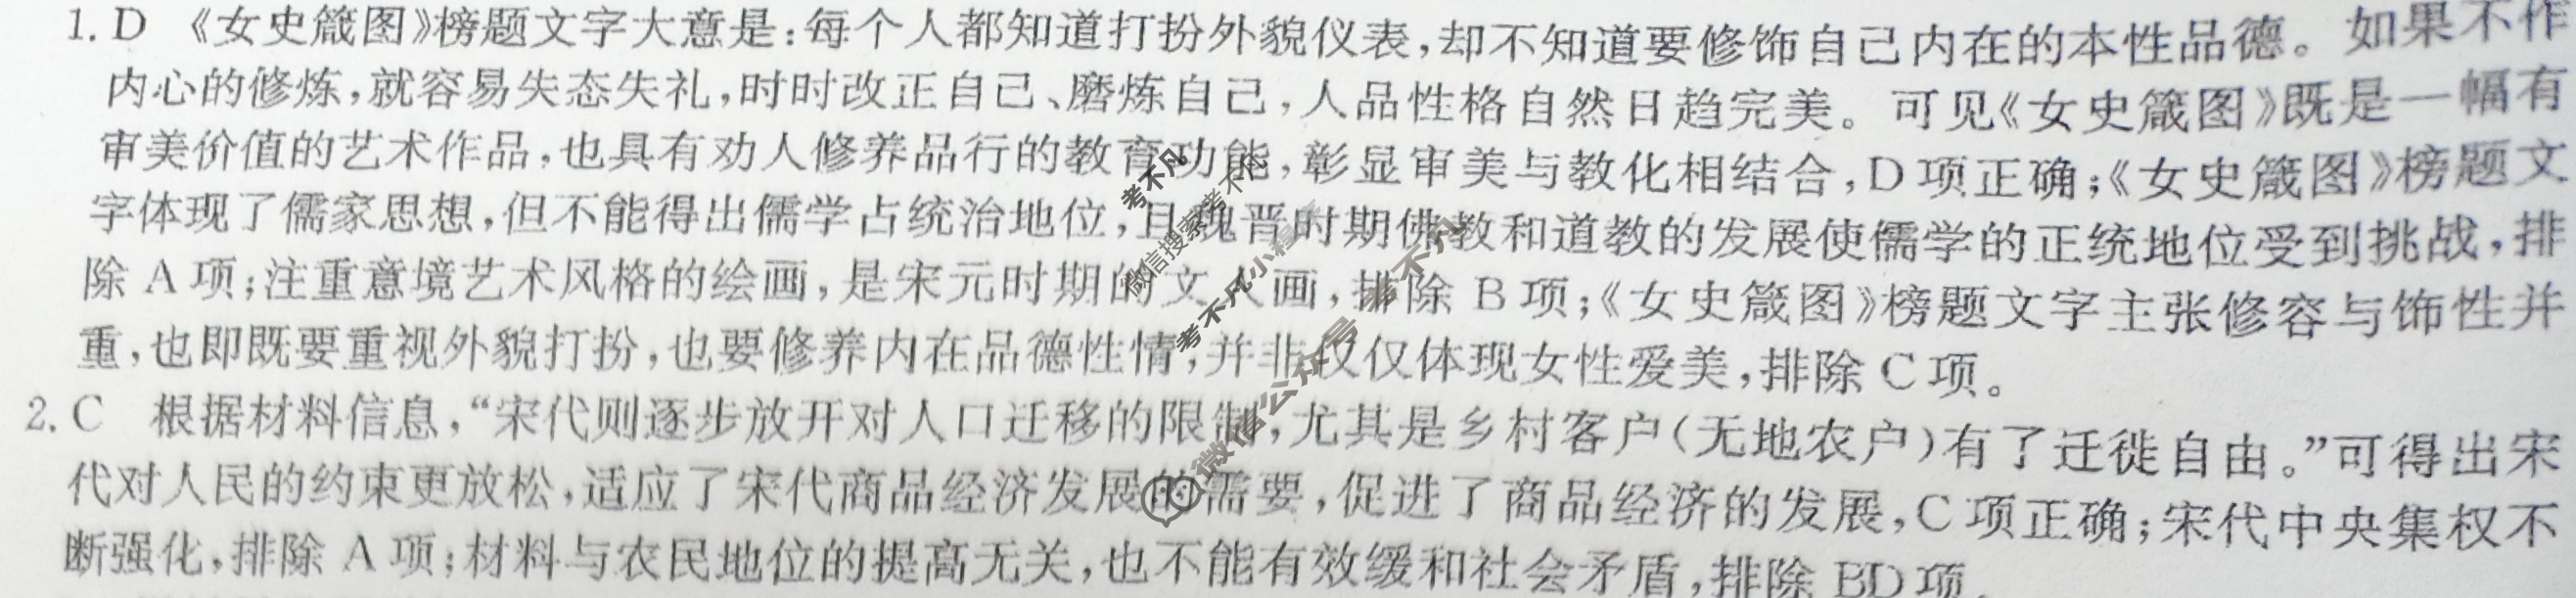 1. D 《女史箴图》榜题文字大意是:每个人都知道打扮外貌仪表,却不知道要修饰自己内在的本性品德。如果不作
内心的修炼,就容易失态失礼,时时改正自己、磨炼自己,人品性格自然日趋完美。可见《女史箴图》既是一幅有
审美价值的艺术作品,也具有劝人修养品行的教育功能,彰显审美与教化相结合,D项正确;《女史箴图》榜题文
字体现了儒家思想,但不能得出儒学占统治地位,且魏晋时期佛教和道教的发展使儒学的正统地位受到挑战,排
除 A 项;注重意境艺术风格的绘画,是宋元时期的文人画,排除 B 项;《女史箴图》榜题文字主张修容与饰性并
重,也即既要重视外貌打扮,也要修养内在品德性情,并非仅仅体现女性爱美,排除 C 项。
2. C 根据材料信息,“宋代则逐步放开对人口迁移的限制,尤其是乡村客户(无地农户)有了迁徙自由。”可得出宋
代对人民的约束更放松,适应了宋代商品经济发展的需要,促进了商品经济的发展,C 项正确;宋代中央集权不
断强化,排除 A 项;材料与农民地位的提高无关,也不能有效缓和社会矛盾,排除 BD 项。
考不凡
微信搜索考不凡
考不凡小程序
微信公众号 考不凡